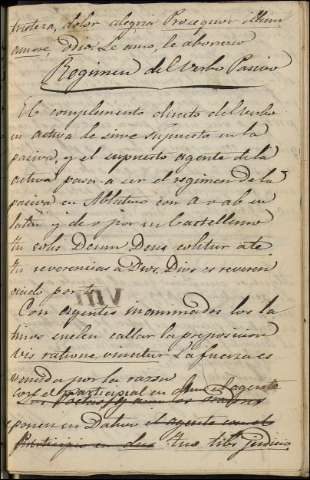 tristeza, dolor alegria Prosequor illum
amore, Dios Le amo, le aborrezco
Regimen del Verbo Pasivo
El complemento directo del verbo
en activa le sirve supuesto en la
pasiva, y el supuesto agente de la
activa pasa a ser el regimen de la
pasiva en Ablativo con a o ab en
latin y de o por en Castellano
tu colis Deum Deus colitur a te
tu reverencias a Dios, Dios es reveren
ciado por ti
Con agentes inanimados los la
tinos suelen callar la preposicion
Vis ratione vincitur La fuerza es
vencida por la razon
Con el participial en dus el agente
ponen en Dativo el agente con el
Participio en dus tibi